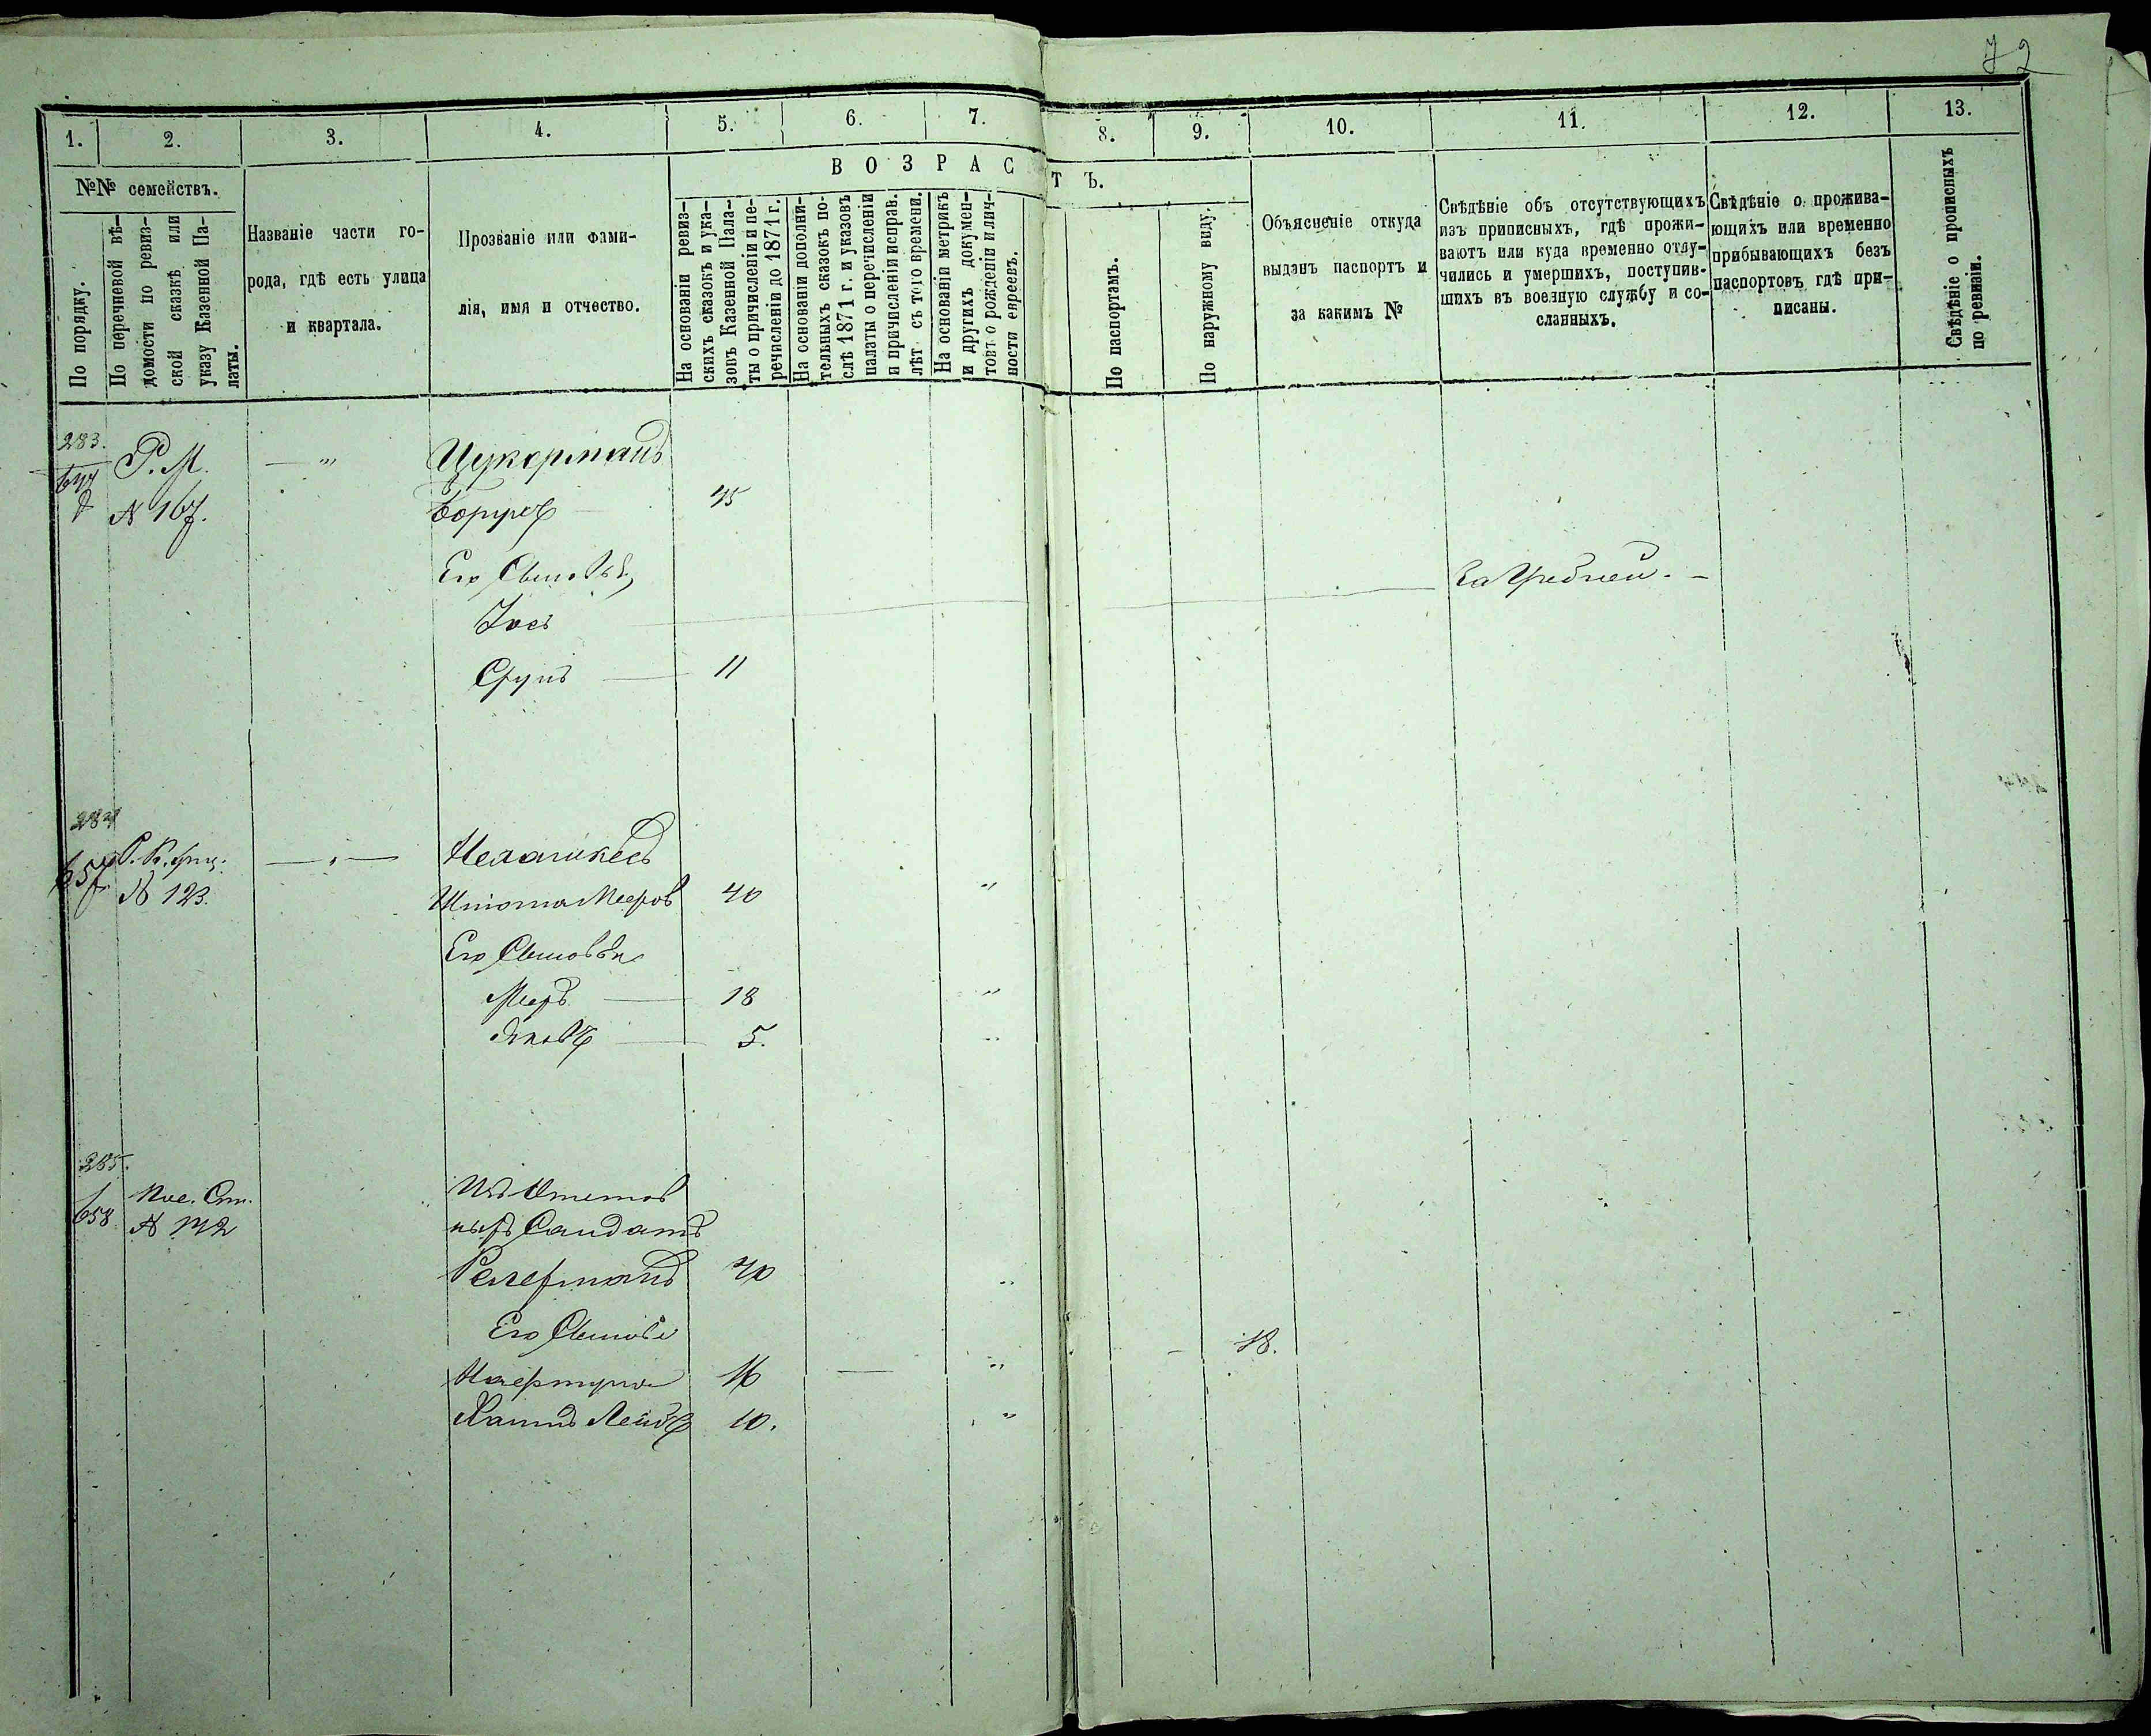 72
1. 2. 3. 4. 5. 6. 7. 8. 9. 10. 11. 12. 13.
№№ семействъ.
По порядку.
По перечневой вѣ-
домости по ревиз-
ской сказкѣ или
указу Казенной Па-
латы.
Названіе части го-
рода, гдѣ есть улица
и квартала.
Прозваніе или фами-
лія, имя и отчество.
ВОЗРАСТЪ.
На основаніи ревиз-
скихъ сказокъ и ука-
зовъ Казенной Пала-
ты о причисленіи и пе-
речисленіи до 1871 г.
На основаніи дополни-
тельныхъ сказокъ по-
слѣ 1871 г. и указовъ
палаты о перечисленіи
и причисленіи исправ.
лѣт съ того времени.
На основаніи метрикъ
и другихъ докумен-
товъ о рожденіи и лич-
ности евреевъ.
По паспортамъ.
По наружному виду.
Объясненіе откуда
выданъ паспортъ и
за какимъ №
Свѣдѣніе объ отсутствующихъ
изъ приписныхъ, гдѣ прожи-
ваютъ или куда временно отлу-
чились и умершихъ, поступив-
шихъ въ военную службу и со-
сланныхъ.
Свѣдѣніе о прожива-
ющихъ или временно
прибывающихъ безъ
паспортовъ гдѣ при-
писаны.
Свѣдѣніе о прописныхъ
по ревизіи.
283.
Р. М. — " Цукерманъ
№ 167. Борухъ — 45
Его Сыновья
Іось
Срулъ — 11
284
657 — " —
№ 123. Мееров 40 "
Его Сыновья
Мееръ — 18 "
Яковъ — 5. "
285.
658 Изъ
№ 142
Келерманъ 40 "
Его Сыновья 18.
16 — "
Хаимъ Лейбъ 10. "